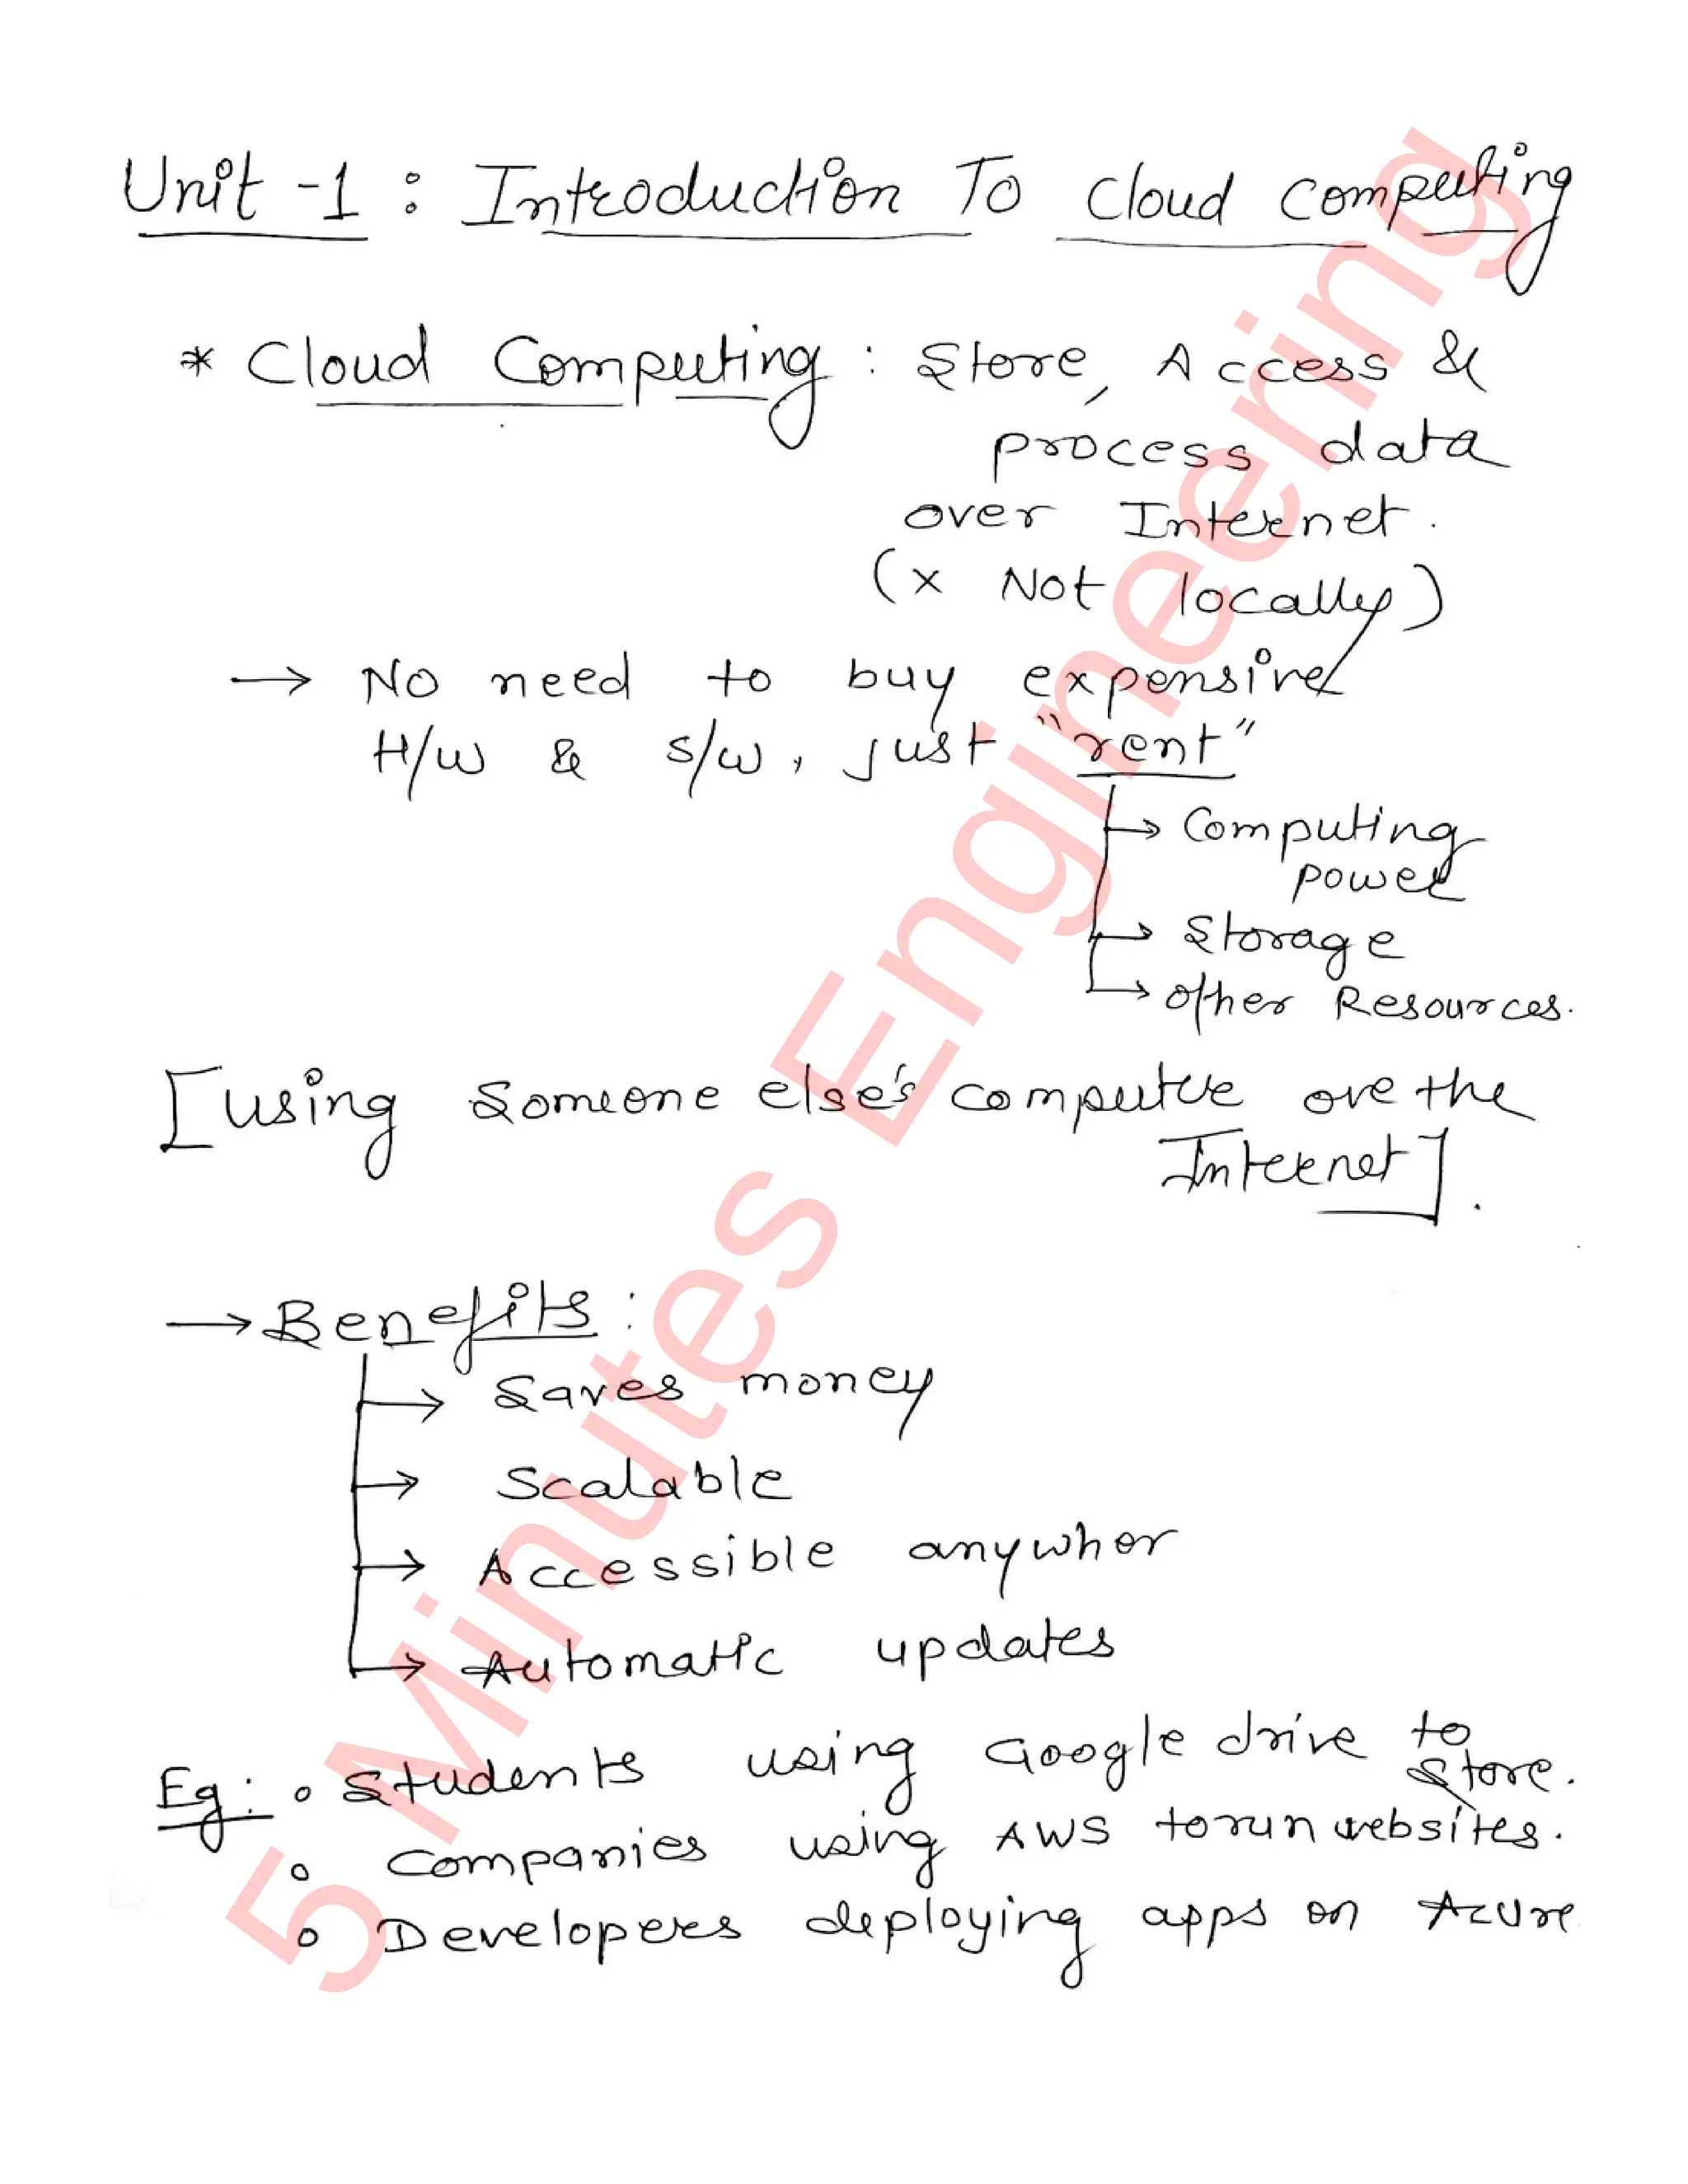 Unit -1 : Introduction To Cloud Computing
* Cloud Computing : Store, Access &
process data
over Internet.
(x Not locally)
→ No need to buy expensive
H/W & S/W, just "rent"
→ Computing
power
→ Storage
→ Other Resources.
[using Someone else's computer ove the
Internet].
→ Benefits :
→ Saves money
→ Scalable
→ Accessible anywher
→ Automatic updates
Eg : o Students using Google drive to
store.
o Companies using AWS to run websites.
o Developers deploying apps on Azure
5 Minutes Engineering